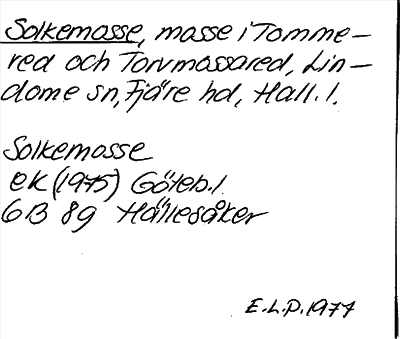 Solkemosse, mosse i Tomme-
red och Torvmossared, Lin-
dome sn, Fjäre hd, Hall. l.
Solkemosse
ek (1975) Göteb. l
6B 8g Hällesåker
E.L.P. 1977